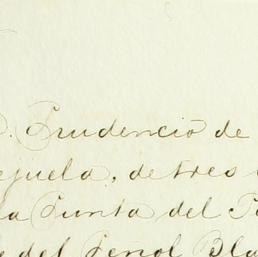 D. Prudencio de
ezuela, de tres
la Punta del
del Peñol Bla